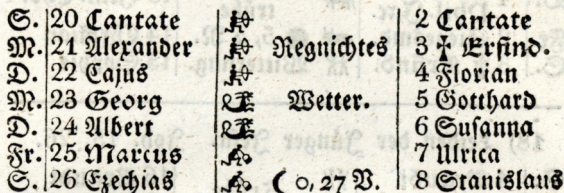 S. 20 Cantate 2 Cantate
M. 21 Alexander Regnichtes 3 † Erfind.
D. 22 Cajus 4 Florian
M. 23 Georg Wetter. 5 Gotthard
D. 24 Albert 6 Susanna
Fr. 25 Marcus 7 Ulrica
S. 26 Ezechias ☾ 0, 27 V. 8 Stanislaus